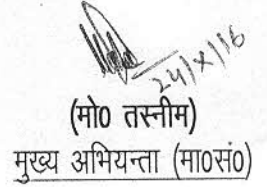 24/X/16
(मो0 तस्नीम)
मुख्य अभियन्ता (मा0सं0)